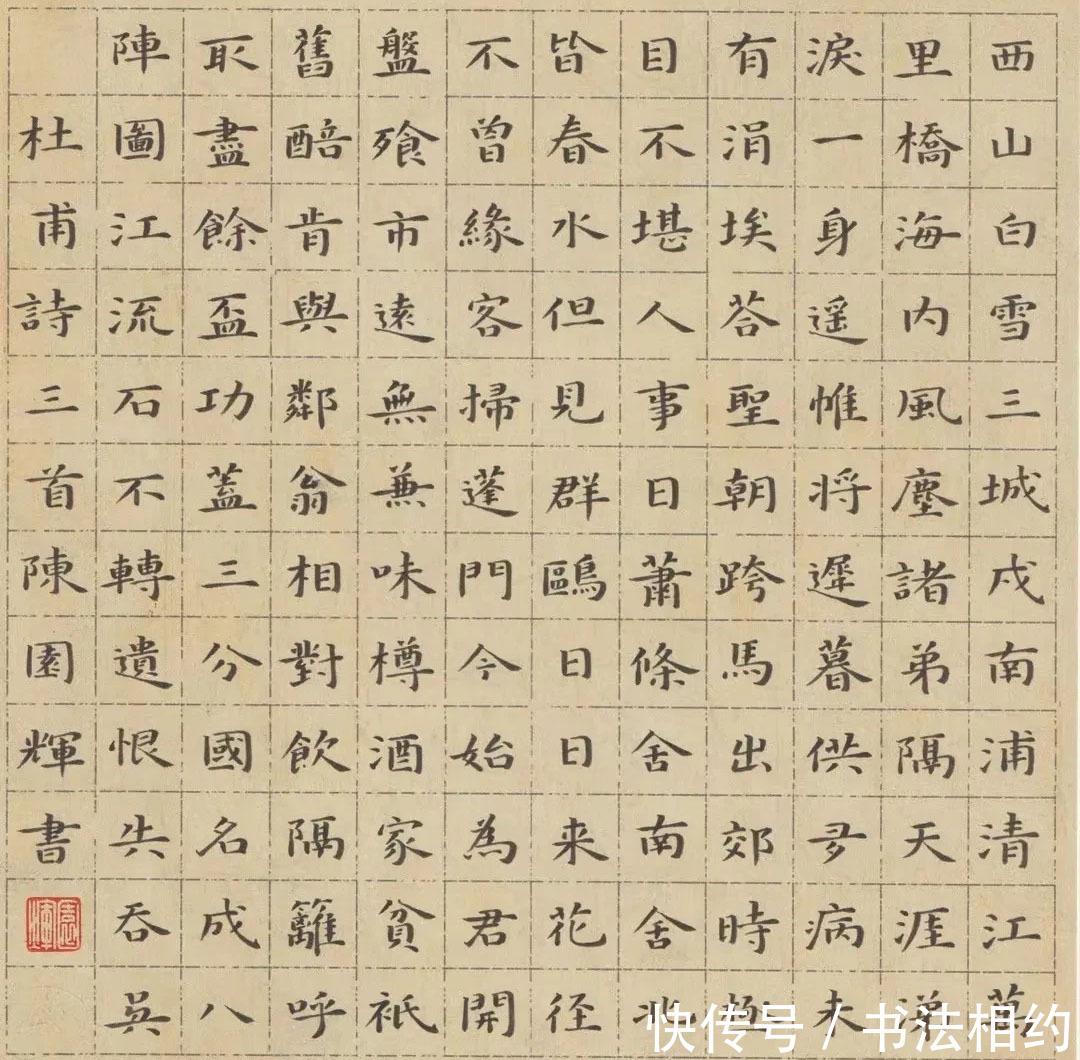 西山白雪三城戍南浦清江萬
里橋海内風塵諸弟隔天涯涕
淚一身遥惟将遲暮供多病未
有涓埃荅聖朝跨馬出郊時極
目不堪人事日蕭條舍南舍北
皆春水但見群鷗日日来花径
不曾緣客掃蓬門今始為君開
盤飱市遠無兼味樽酒家貧衹
舊醅肯與鄰翁相對飲隔籬呼
取盡餘盃功蓋三分國名成八
陣圖江流石不轉遺恨失吞吳
杜甫詩三首陳園輝書
園輝
快传号 / 书法相约